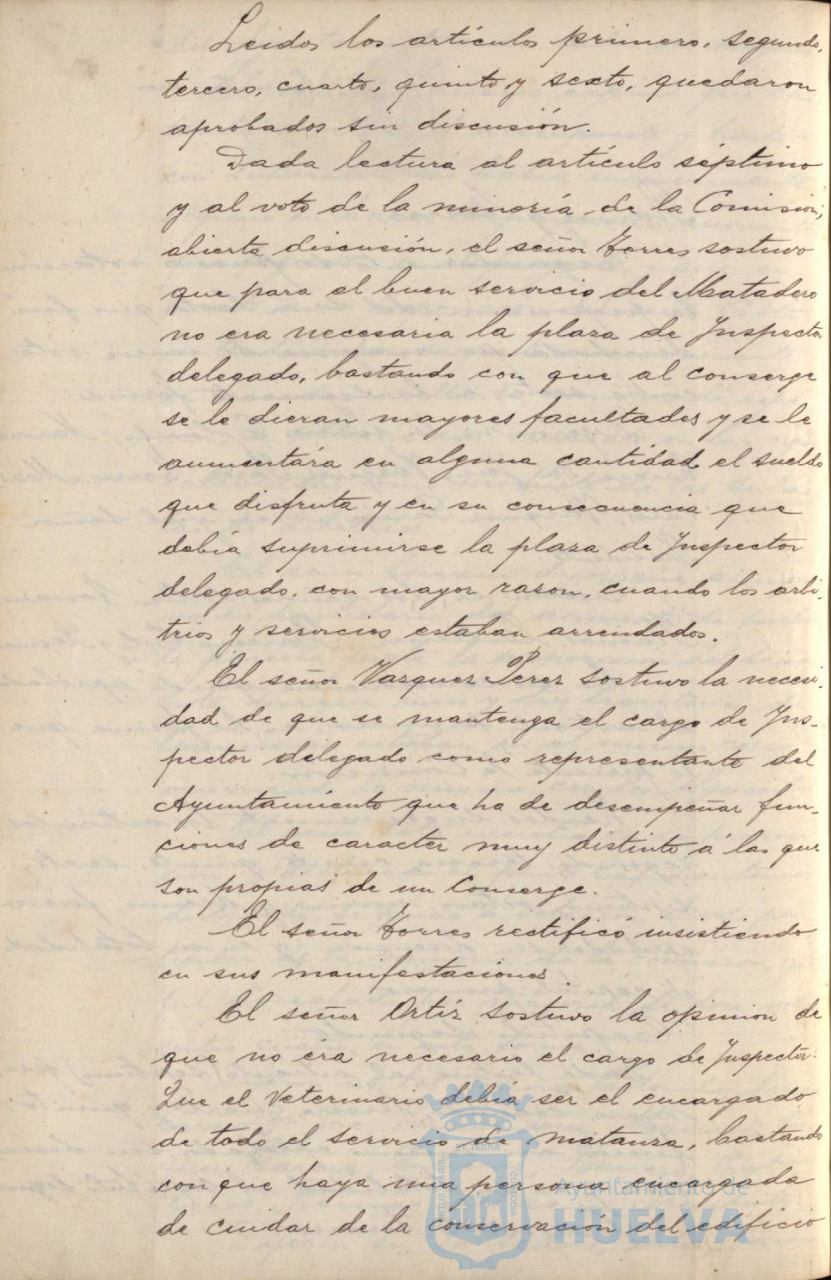 Leidos los artículos primero, segundo,
tercero, cuarto, quinto y sexto, quedaron
aprobados sin discusión.
Dada lectura al artículo séptimo
y al voto de la minoría de la Comision,
abierta discusión, el señor Torres sostuvo
que para el buen servicio del Matadero
no era necesaria la plaza de Inspector
delegado, bastando con que al conserge
se le dieran mayores facultades y se le
aumentára en alguna cantidad el sueldo
que disfruta y en su consecuencia que
debía suprimirse la plaza de Inspector
delegado, con mayor razon, cuando los arbi-
trios y servicios estaban arrendados.
El señor Vazquez Perez sostuvo la necesi-
dad de que se mantenga el cargo de Ins-
pector delegado como representante del
Ayuntamiento que ha de desempeñar fun-
ciones de caracter muy distinto á las que
son propias de un Conserge.
El señor Torres rectificó insistiendo
en sus manifestaciones.
El señor Ortíz sostuvo la opinion de
que no éra necesario el cargo de Inspector:
Que el Veterinario debía ser el encargado
de todo el servicio de matanza, bastando
con que haya una persona encargada
de cuidar de la conservación del edificio
Ayuntamiento de
HUELVA